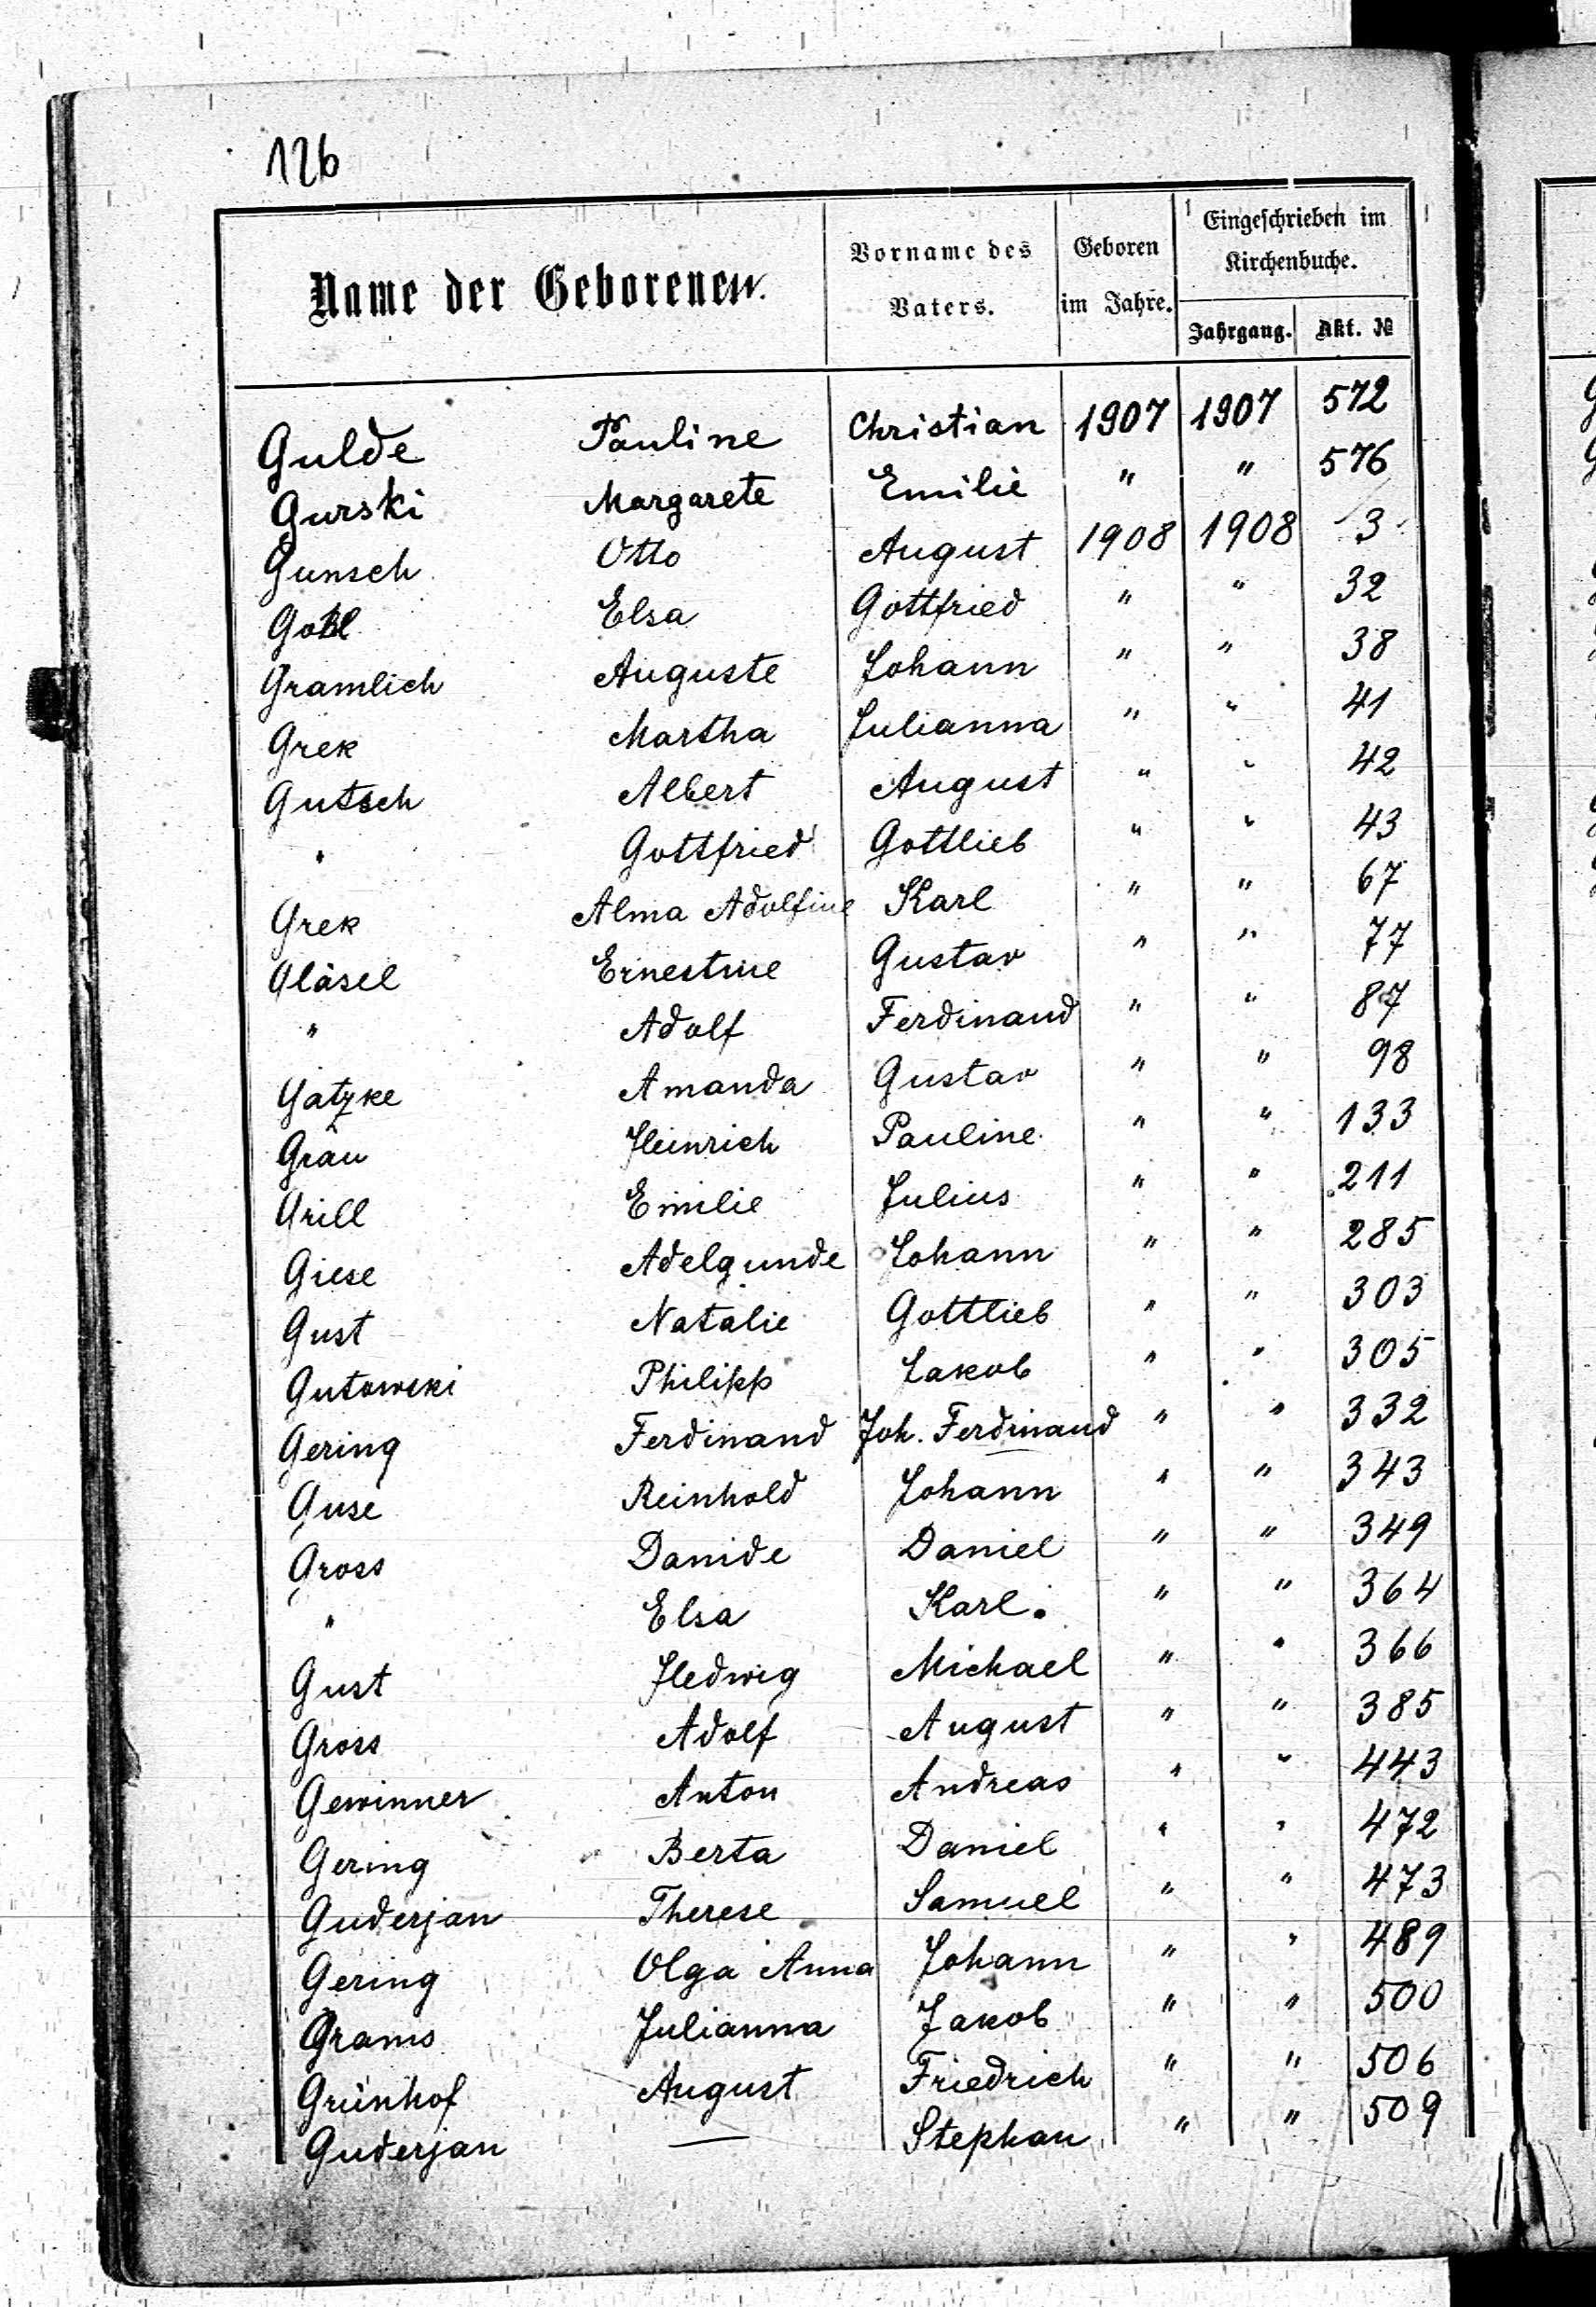 126
Name der Geborenen. Vorname des Vaters. Geboren im Jahre. Eingeschrieben im Kirchenbuche. Jahrgang. Akt. №
Gulde Pauline Christian 1907 1907 572
Gurski Margarete Emilie " " 576
Gunsch Otto August 1908 1908 3
Elsa Gottfried " " 32
Gramlich Auguste Johann " " 38
Grek Martha Julianna " " 41
Gutsch Albert August " " 42
" Gottfried Gottlieb " " 43
Grek Alma Adolfine Karl " " 67
Gläsel Ernestine Gustav " " 77
" Adolf Ferdinand " " 87
Gatzke Amanda Gustav " " 98
Grau Heinrich Pauline " " 133
Grill Emilie Julius " " 211
Giese Adelgunde Johann " " 285
Gust Natalie Gottlieb " " 303
Gutowski Philipp Jakob " " 305
Gering Ferdinand Joh. Ferdinand " " 332
Guse Reinhold Johann " " 343
Gross Danide Daniel " " 349
" Elsa Karl. " " 364
Gust Hedwig Michael " " 366
Gross Adolf August " " 385
Gewinner Anton Andreas " " 443
Gering Berta Daniel " " 472
Guderjan Therese Samuel " " 473
Gering Olga Anna Johann " " 489
Grams Julianna Jakob " " 500
Grünhof August Friedrich " " 506
Guderjan — Stephan " " 509